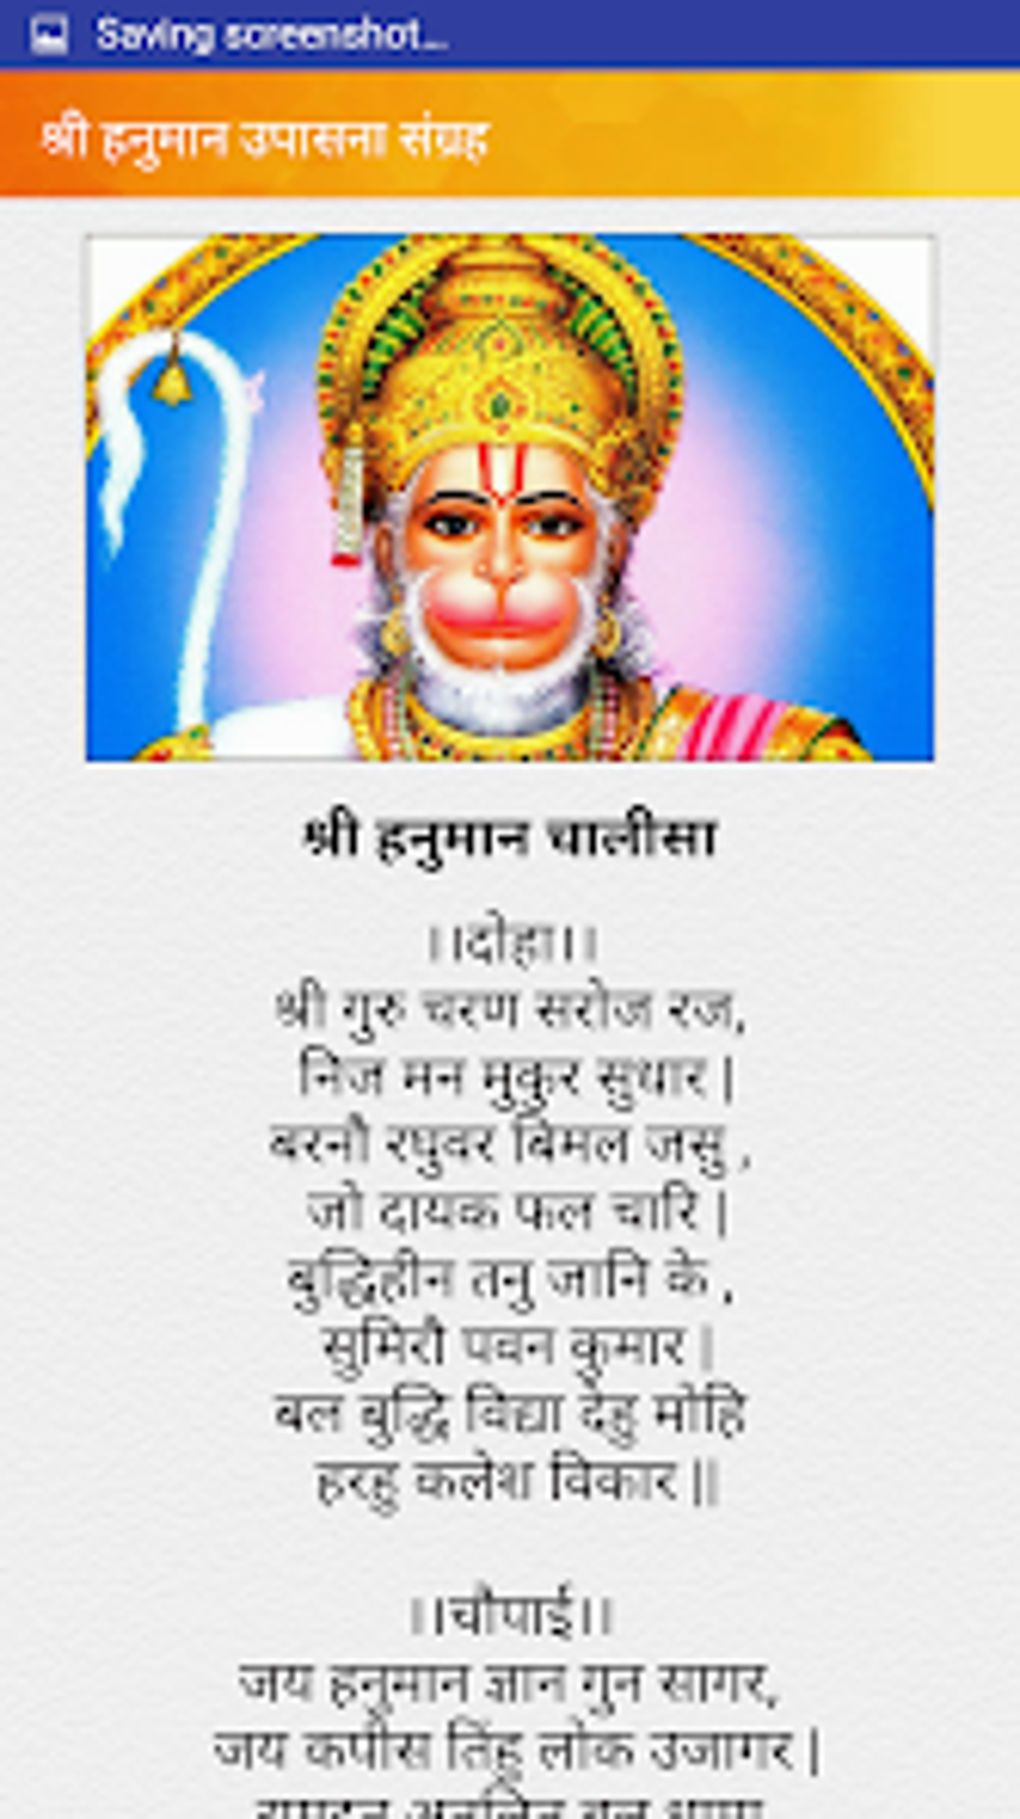 Saving screenshot...
श्री हनुमान उपासना संग्रह
श्री हनुमान चालीसा
।।दोहा।।
श्री गुरु चरण सरोज रज,
निज मन मुकुर सुधार |
बरनौ रघुवर बिमल जसु ,
जो दायक फल चारि |
बुद्धिहीन तनु जानि के ,
सुमिरौ पवन कुमार |
बल बुद्धि विद्या देहु मोहि
हरहु कलेश विकार ||
।।चौपाई।।
जय हनुमान ज्ञान गुन सागर,
जय कपीस तिंहु लोक उजागर |